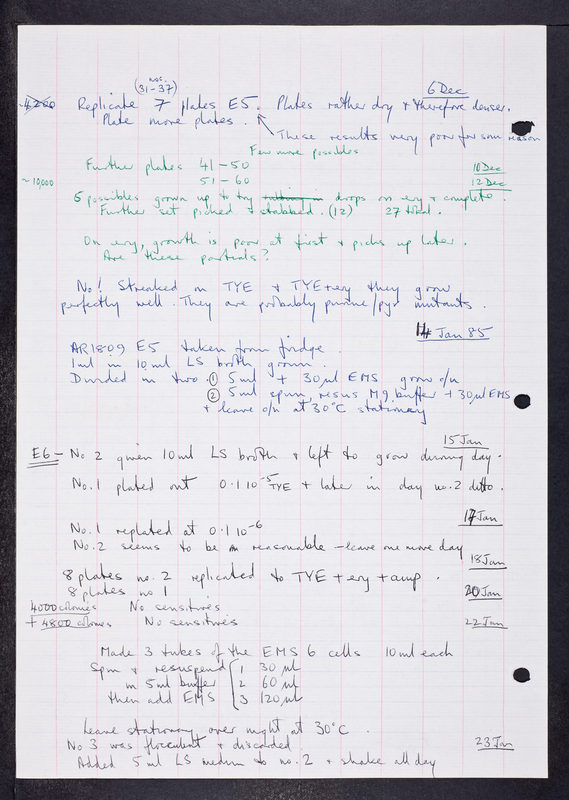 nos.
(31-37)
6 Dec
4200 Replicate 7 plates E5. Plates rather dry & therefore denser.
Plate more plates.
These results very poor for some reason
Few more possibles
Further plates 41-50 10 Dec
~10,000 51-60 12 Dec
5 possibles grown up to try drops on ery & complete.
Further set picked & stabbed. (12) 27 total.
On ery, growth is poor at first & picks up later.
Are these partials?
No! Streaked on TYE & TYE+ery they grow
perfectly well. They are probably purine/pyr mutants.
14 Jan 85
AR1809 E5 taken from fridge.
1ml in 10ml LS broth grown.
Divided in two. ① 5ml + 30µl EMS grow o/n
② 5ml spun, resus Mg buffer + 30µl EMS
& leave o/n at 30°C stationary
15 Jan
E6 - No. 2 given 10ml LS broth & left to grow during day.
No. 1 plated out 0.1 10⁻⁵ TYE & later in day no. 2 ditto.
17 Jan
No. 1 replated at 0.1 10⁻⁶
No. 2 seems to be reasonable - leave one more day
18 Jan
8 plates no. 2 replicated to TYE + ery + amp.
8 plates no 1 20 Jan
4000 colonies No sensitives
+ 4800 colonies No sensitives 22 Jan
Made 3 tubes of the EMS 6 cells 10ml each
Spin & resuspend 1 30 µl
in 5ml buffer 2 60 µl
then add EMS 3 120 µl
Leave stationary over night at 30°C.
No 3 was flocculent & discarded 23 Jan
Added 5ml LS medium to no. 2 & shake all day